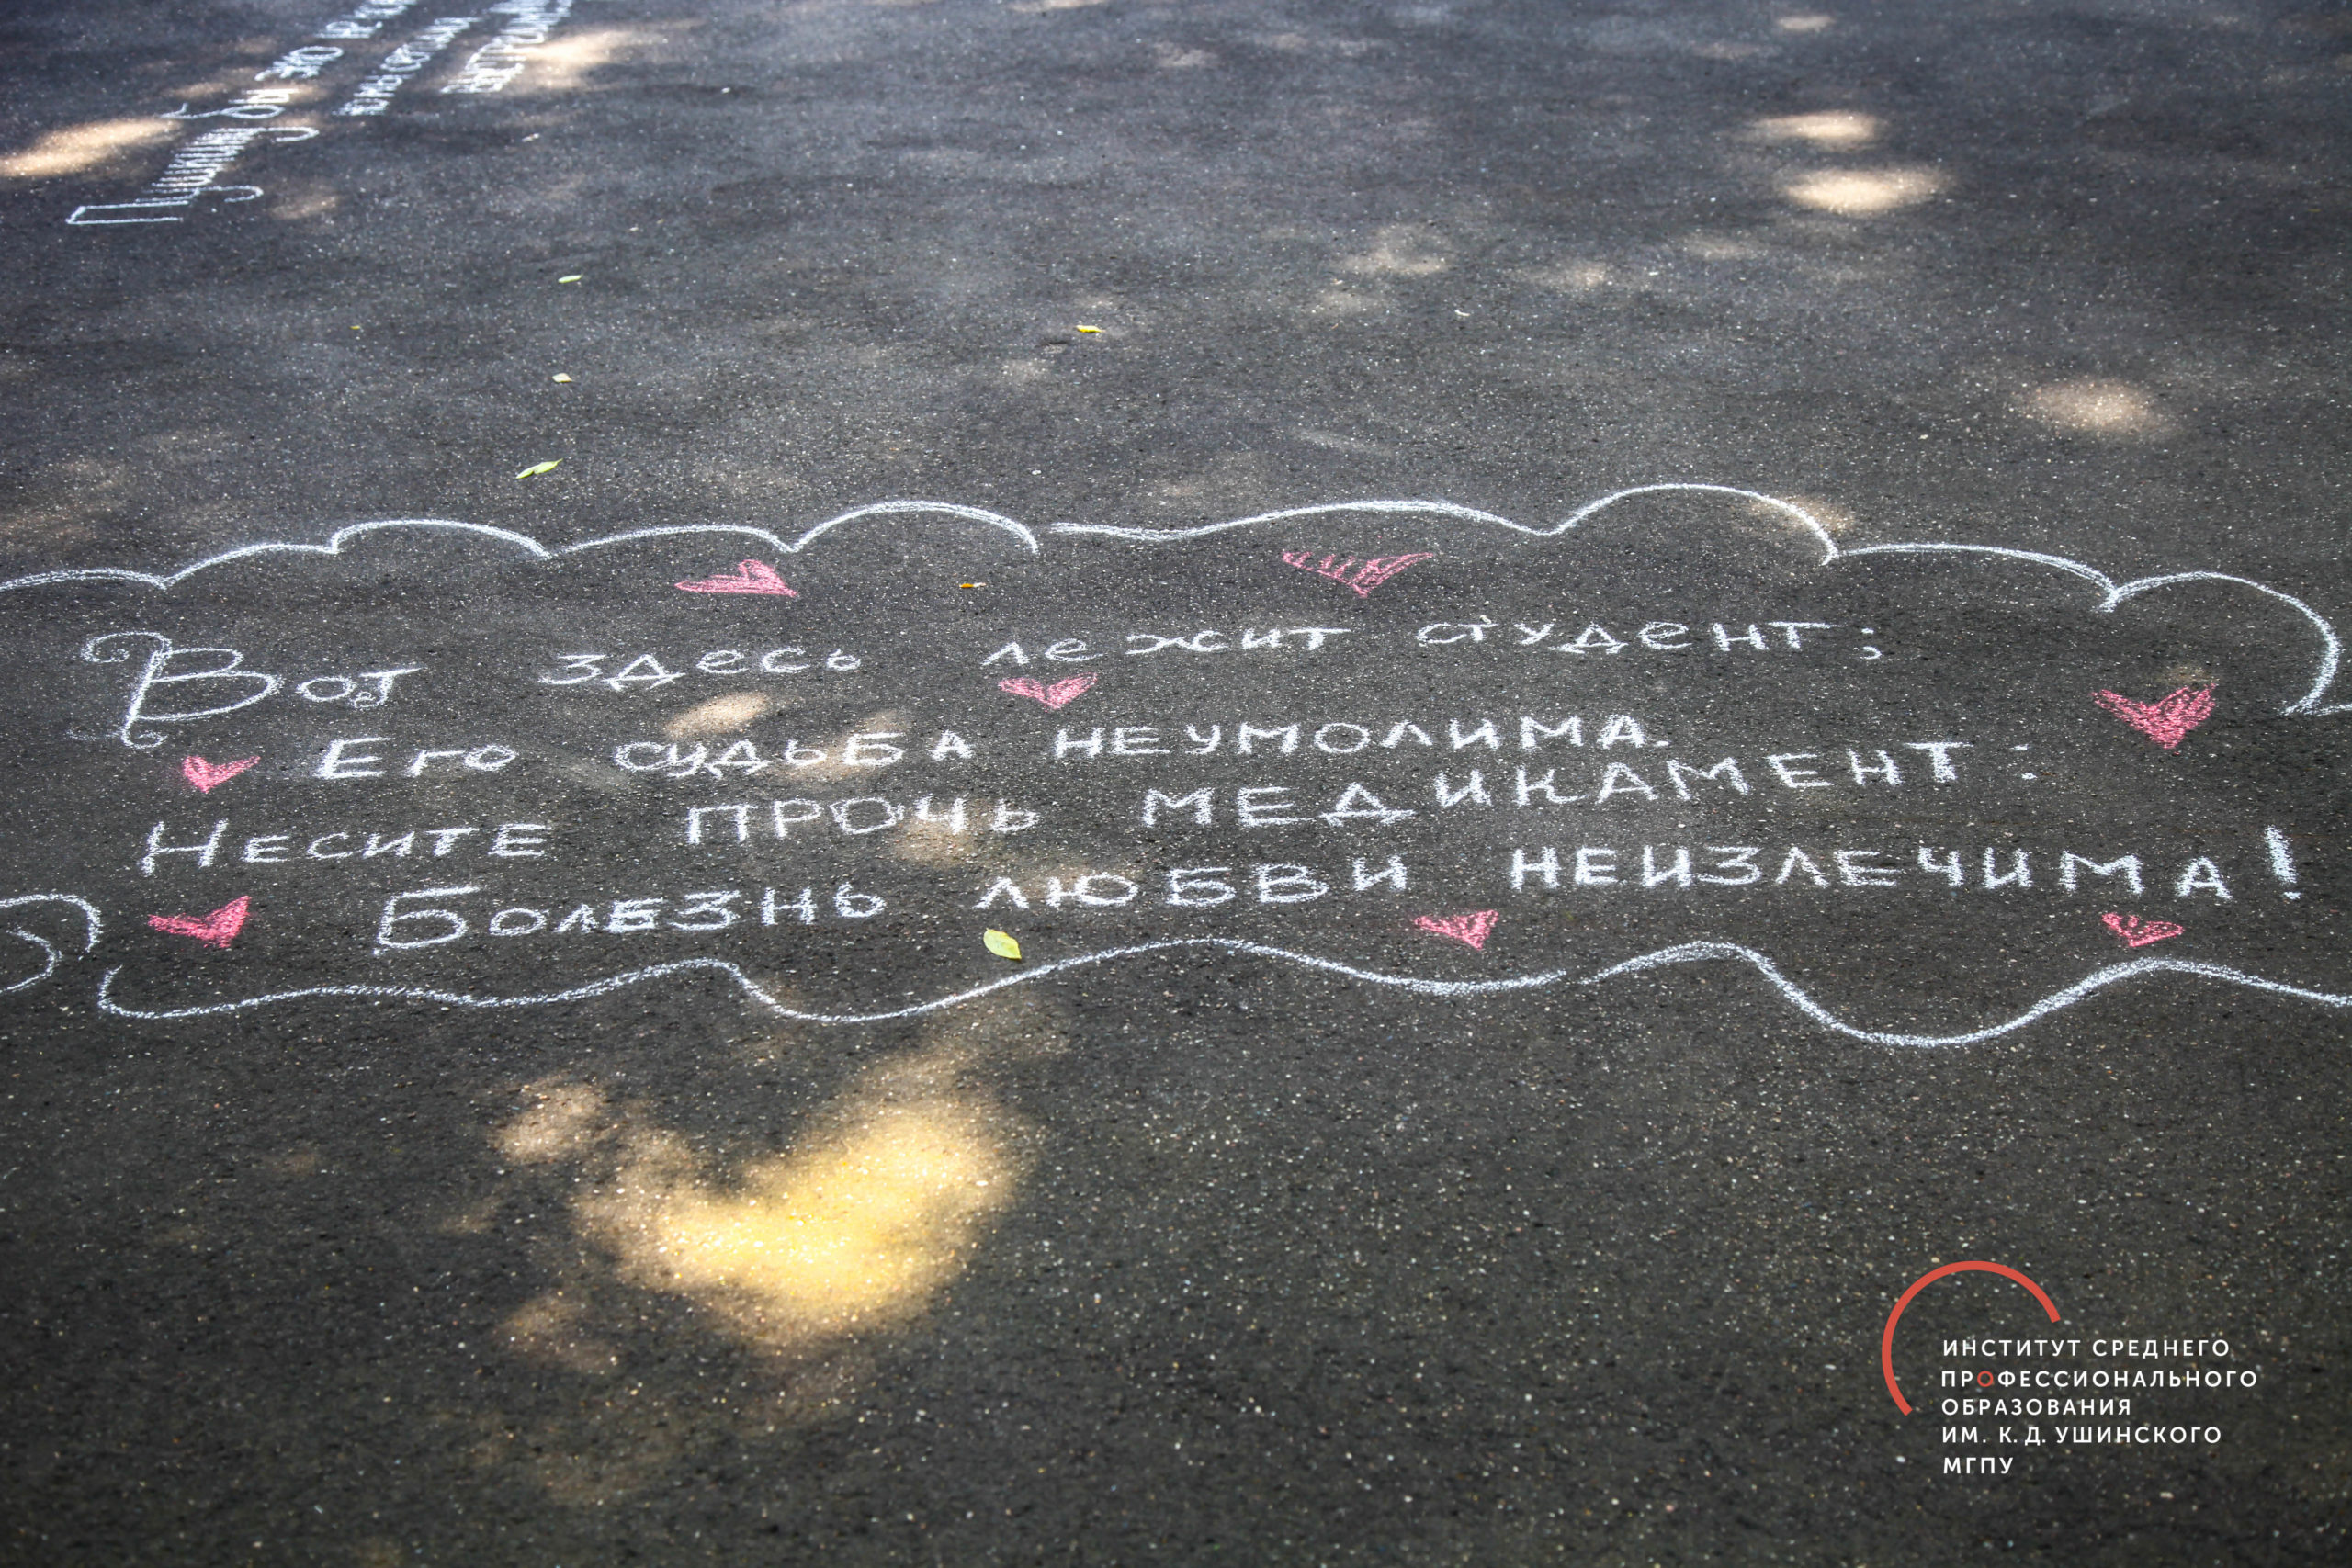 Пушкин бы это
Вот здесь лежит студент;
Его судьба неумолима.
Несите прочь медикамент:
Болезнь любви неизлечима!
ИНСТИТУТ СРЕДНЕГО
ПРОФЕССИОНАЛЬНОГО
ОБРАЗОВАНИЯ
ИМ. К. Д. УШИНСКОГО
МГПУ